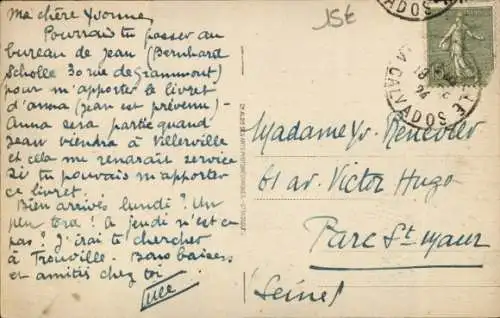 Ma chère Yvonne,
Pourrais tu passer au
bureau de Jean (Bernhard
Scholle 30 rue de Grammont)
pour m'apporter le livret
d'anna (Jean est prévenu) -
Anna sera partie quand
Jean viendra à Villerville
et cela me rendrait service
si tu pouvais m'apporter
ce livret.
Bien arrivés lundi ? Un
peu tora ! à jeudi n'est ce
pas ? J'irai te chercher
à Trouville. Bons baisers
et amitiés chez toi
15€
CALVADOS
CALVADOS
Madame Yv.
61 av. Victor Hugo
Parc St Maur
(Seine)